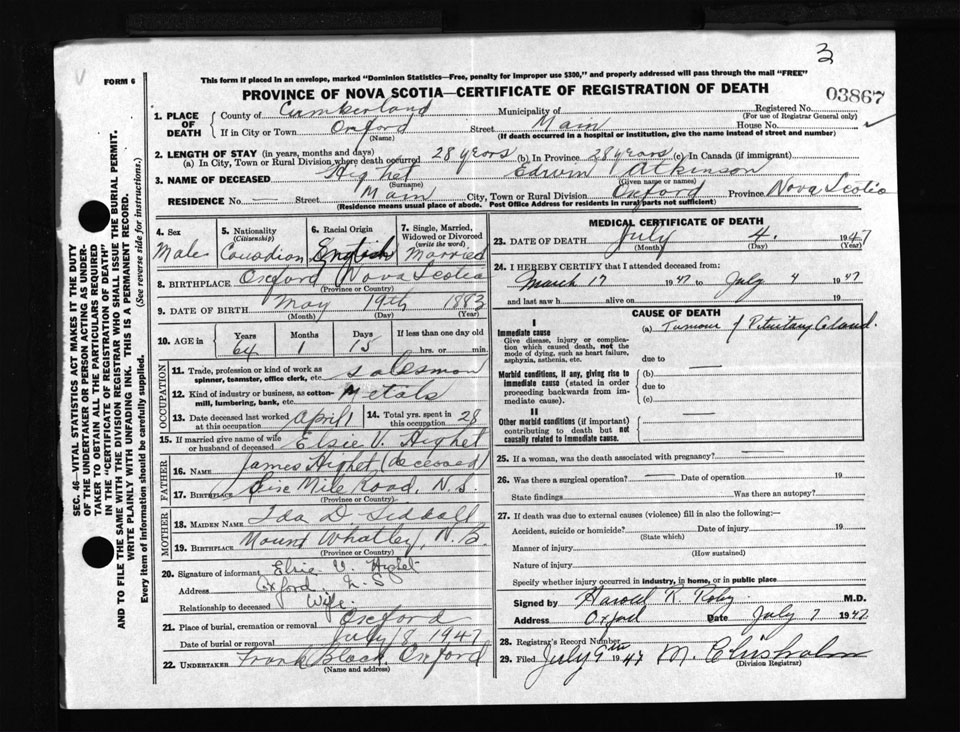 3
FORM 6
This form if placed in an envelope, marked "Dominion Statistics—Free, penalty for improper use $300," and properly addressed will pass through the mail "FREE"
PROVINCE OF NOVA SCOTIA—CERTIFICATE OF REGISTRATION OF DEATH
03867
1. PLACE OF DEATH County of Cumberland Municipality of Registered No. (For use of Registrar General only)
If in City or Town Oxford (Name) Street Main House No.
(If death occurred in a hospital or institution, give the name instead of street and number)
2. LENGTH OF STAY (in years, months and days)
(a) In City, Town or Rural Division where death occurred 28 years (b) In Province 28 years (c) In Canada (if immigrant)
3. NAME OF DECEASED Highet (Surname) Edwin Atkinson (Given name or names)
RESIDENCE No. — Street Main City, Town or Rural Division Oxford Province Nova Scotia
(Residence means usual place of abode. Post Office Address for residents in rural parts not sufficient)
SEC. 46—VITAL STATISTICS ACT MAKES IT THE DUTY
OF THE UNDERTAKER OR PERSON ACTING AS UNDER-
TAKER TO OBTAIN ALL THE PARTICULARS REQUIRED
IN THE "CERTIFICATE OF REGISTRATION OF DEATH"
AND TO FILE THE SAME WITH THE DIVISION REGISTRAR WHO SHALL ISSUE THE BURIAL PERMIT.
WRITE PLAINLY WITH UNFADING INK. THIS IS A PERMANENT RECORD.
Every item of information should be carefully supplied. (See reverse side for instructions.)
4. Sex Male
5. Nationality (Citizenship) Canadian
6. Racial Origin English
7. Single, Married, Widowed or Divorced (write the word) Married
8. BIRTHPLACE Oxford Nova Scotia
(Province or Country)
9. DATE OF BIRTH May 19th 1883
(Month) (Day) (Year)
10. AGE in Years 64 Months 1 Days 15 If less than one day old hrs. or min.
OCCUPATION
11. Trade, profession or kind of work as spinner, teamster, office clerk, etc. Salesman
12. Kind of industry or business, as cotton-mill, lumbering, bank, etc. Metals
13. Date deceased last worked at this occupation April 14. Total yrs. spent in this occupation 28
15. If married give name of wife or husband of deceased Elsie V. Highet
FATHER
16. NAME James Highet (deceased)
17. BIRTHPLACE Mile Road, N.S.
(Province or Country)
MOTHER
18. MAIDEN NAME Ida D
19. BIRTHPLACE Mount Whatley, N.B
(Province or Country)
20. Signature of informant Elsie V. Highet
Address Oxford N.S
Relationship to deceased Wife
21. Place of burial, cremation or removal Oxford
Date of burial or removal July 8 1947
22. UNDERTAKER Frank Black Oxford
(Name and address)
MEDICAL CERTIFICATE OF DEATH
23. DATE OF DEATH July 4. 1947
(Month) (Day) (Year)
24. I HEREBY CERTIFY that I attended deceased from:
March 17 1947 to July 4 1947
and last saw h alive on 19
CAUSE OF DEATH
I
Immediate cause (a) Tumour of Pituitary Gland.
Give disease, injury or complica-
tion which caused death, not the
mode of dying, such as heart failure,
asphyxia, asthenia, etc. due to
Morbid conditions, if any, giving rise to (b)
immediate cause (stated in order due to
proceeding backwards from im-
mediate cause). (c)
II
Other morbid conditions (if important)
contributing to death but not
causally related to immediate cause.
25. If a woman, was the death associated with pregnancy? —
26. Was there a surgical operation? — Date of operation 19
State findings Was there an autopsy?
27. If death was due to external causes (violence) fill in also the following:—
Accident, suicide or homicide? (State which) Date of injury 19
Manner of injury (How sustained)
Nature of injury
Specify whether injury occurred in industry, in home, or in public place
Signed by Harold R. M.D.
Address Oxford Date July 7 1947
28. Registrar's Record Number
29. Filed July 9th 1947 M. Chisholm
(Division Registrar)